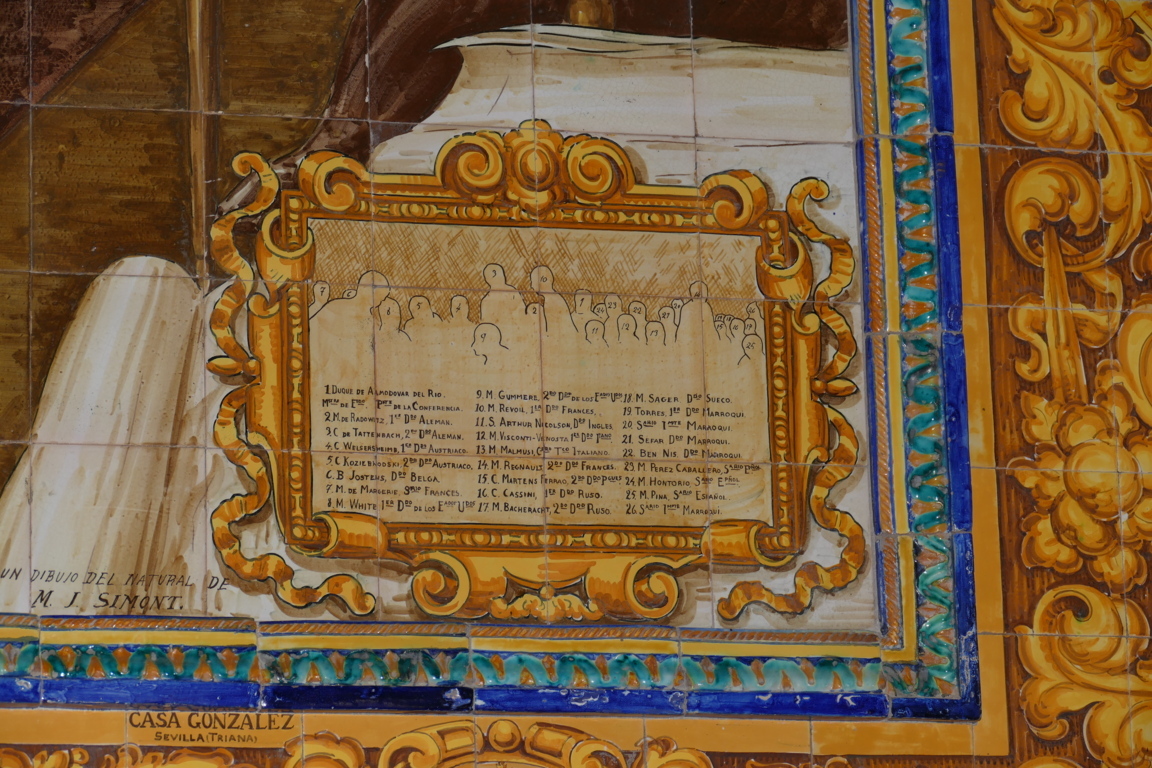 1. DUQUE DE ALMODOVAR DEL RIO.
MTRO DE EDO. PNTE DE LA CONFERENCIA.
2. M. DE RADOWITZ, 1ER DDO ALEMAN.
3. C DE TATTENBACH, 2DO DDO ALEMAN.
4. C WELSERSHEIMB, 1ER DDO AUSTRIACO.
5. C KOZIEBRODSKI, 2DO DDO AUSTRIACO.
6. B. JOSTENS, DDO BELGA.
7. M. DE MARGERIE, SRIO FRANCES.
8. M. WHITE 1ER DDO DE LOS EADOS UDOS
9. M. GUMMERE, 2DO DDO DE LOS EADOS UDOS
10. M. REVOIL, 1ER DDO FRANCES.
11. S. ARTHUR NICOLSON, DDO INGLES.
12. M. VISCONTI-VENOSTA 1ER DDO
13. M. MALMUSI, ITALIANO.
14. M. REGNAULT, 2DO DDO FRANCES.
15 C. MARTENS FERRAO, 2DO DDO PGUES
16 C. CASSINI, 1ER DDO RUSO.
17. M. BACHERACHT, 2DO DDO RUSO.
18. M. SAGER DDO SUECO.
19 TORRES, 1ER DDO MARROQUI.
20 SARIO 1NTPTE MARROQUI.
21. SEFAR DDO MARROQUI.
22 BEN NIS, DDO MARROQUI.
23 M. PEREZ CABALLERO, SARIO
24 M. HONTORIO SARIO EPÑOL
25 M. PIÑA, SARIO ESPAÑOL.
26 SARIO MARROQUI.
UN DIBUJO DEL NATURAL DE
M. J. SIMONT.
CASA GONZALEZ
SEVILLA (TRIANA)